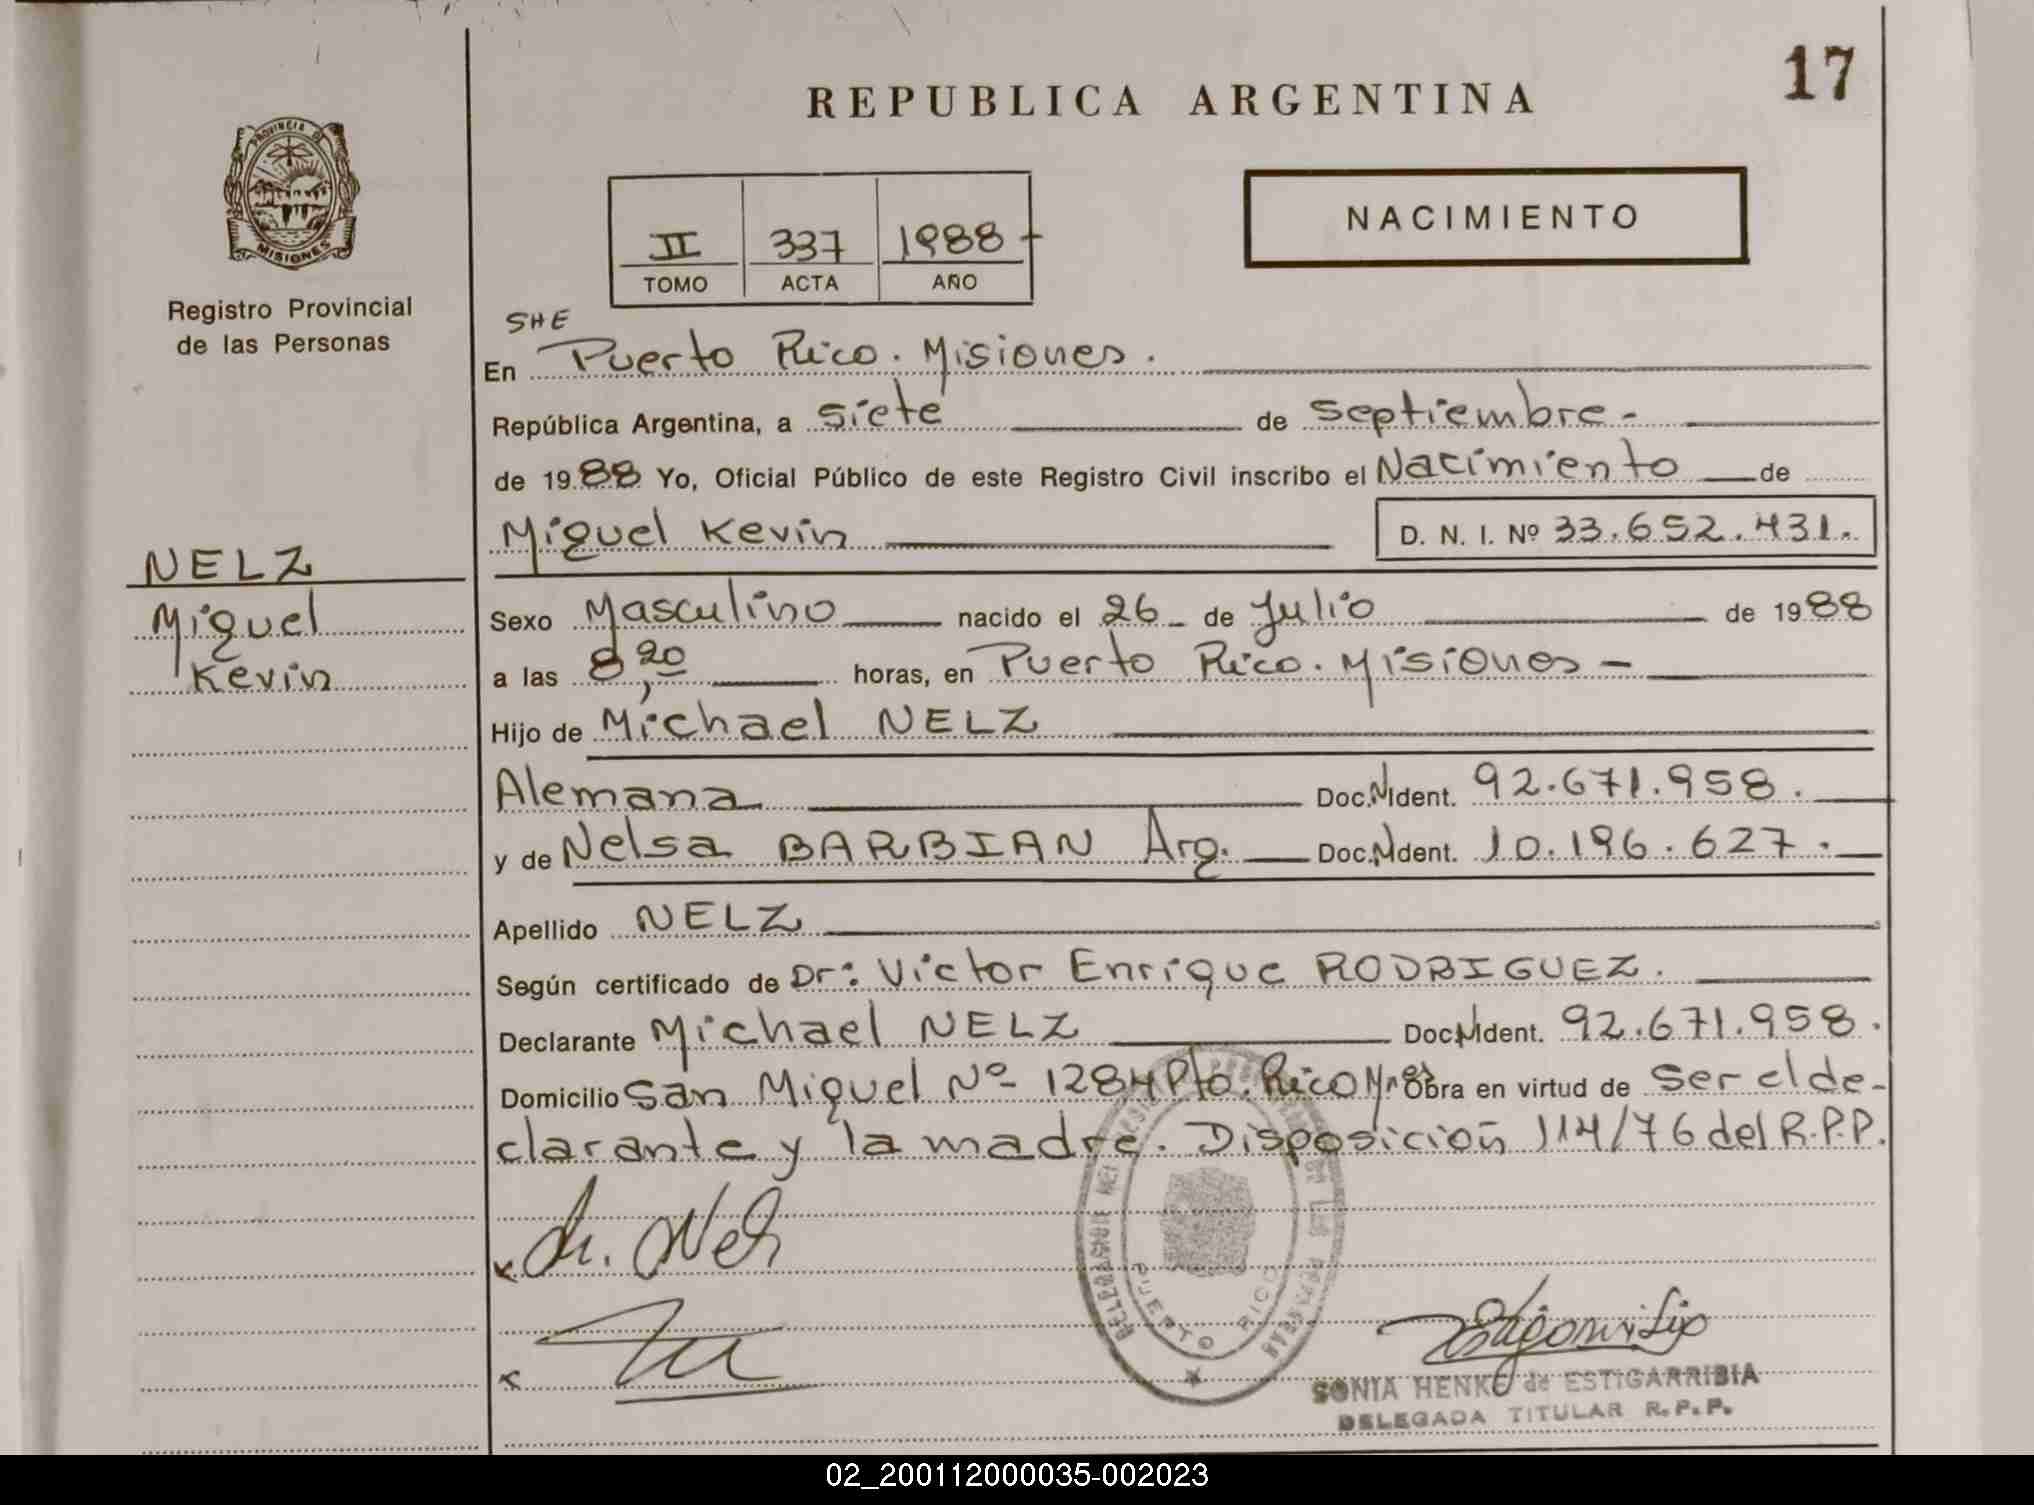 17
REPUBLICA ARGENTINA
PROVINCIA D
MISIONES
Registro Provincial
de las Personas
NACIMIENTO
II 337 1988
TOMO ACTA AÑO
SHE
En Puerto Rico. Misiones.
República Argentina, a siete de septiembre.-
de 1988 Yo, Oficial Público de este Registro Civil inscribo el Nacimiento de
Miguel Kevin D. N. I. Nº 33.652.431.
NELZ
Miguel
Kevin
Sexo Masculino nacido el 26 de Julio de 1988
a las 8,20 horas, en Puerto Rico. Misiones -
Hijo de Michael NELZ
Alemana Doc.NIdent. 92.671.958.
y de Nelsa BARBIAN Arg. Doc.NIdent. 10.196.627.
Apellido NELZ
Según certificado de Dr: Victor Enrique RODRIGUEZ.
Declarante Michael NELZ Doc.NIdent. 92.671.958.
Domicilio San Miguel Nº 1284 Pto. Rico Mnes Obra en virtud de ser el de-
clarante y la madre. Disposición 114/76 del R.P.P.
M. Nelz
PUERTO RICO
SONIA HENKE de ESTIGARRIBIA
DELEGADA TITULAR R.P.P.
02_200112000035-002023